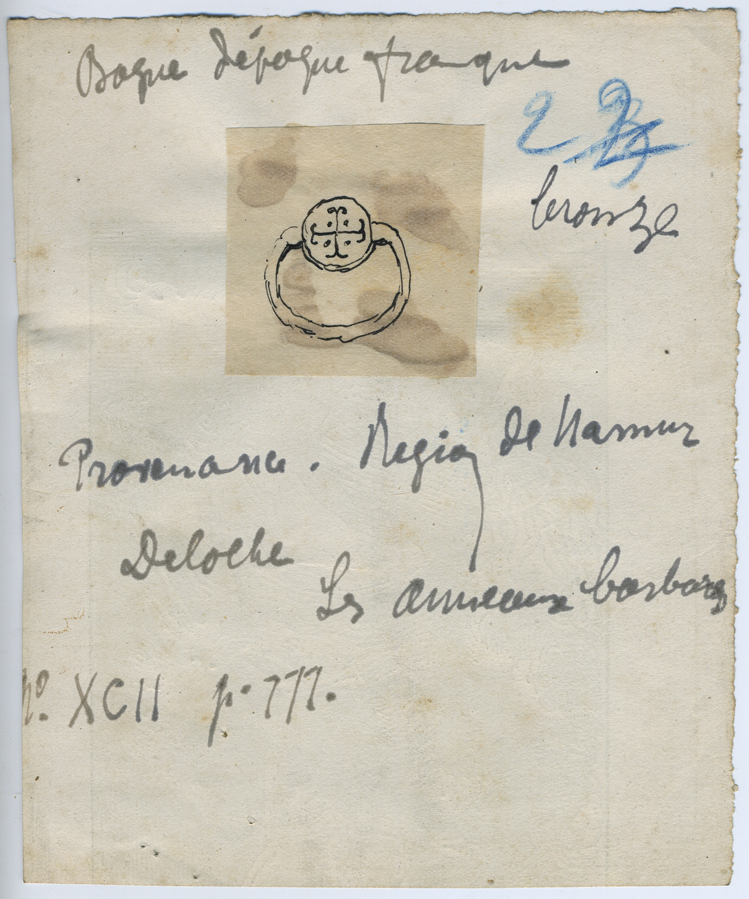 Bague d'époque franque
2
bronze
Provenance. Region de Namur
Deloche
Les anneaux barbares
n°. XCII p. 777.